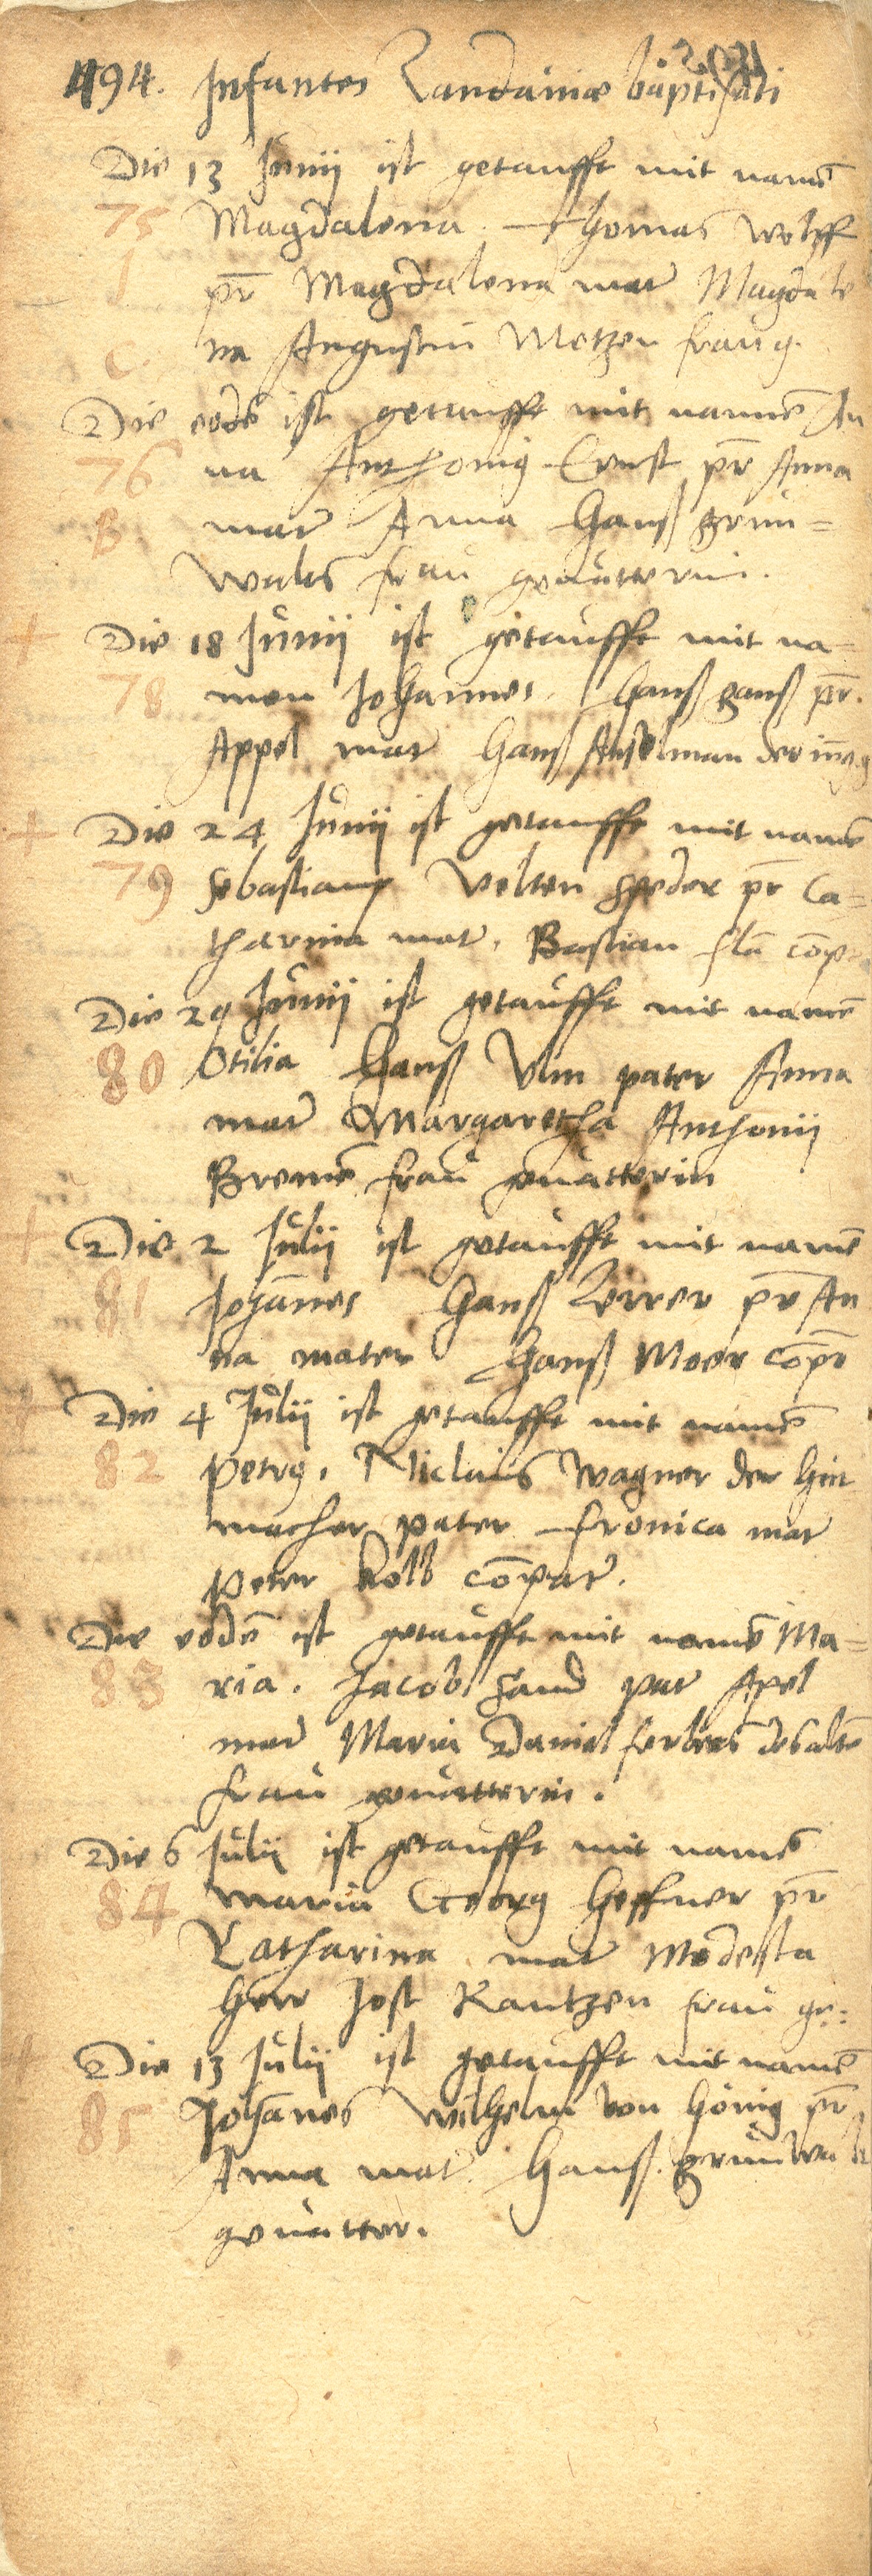 494. Infantes Landauiæ baptisati
Die 13 Junij ist getaufft mit namē
75 Magdalena. Thomas Wolff
1 pr̄ Magdalena mat̄ Magdale
C. na Augustin Metzen frau g.
Die eodē ist getaufft mit namē An
76 na Anthonig Ernst pr̄ Anna
B mat̄ Anna Hanß grun=
walts frau geuatterin.
Die 18 Junij ist getaufft mit na=
78 men Johannes. Hanß ganß pr̄.
Appel mat̄ Hanß Anselman der
Die 24 Junij ist getaufft mit namē
79 Sebastiang Velten pr̄ Ca=
tharina mat̄. Bastian comp
Die 29 Junij ist getaufft mit namē
80 Otilia Hanß Ulm pater Anna
mat̄ Margaretha Anthonij
Bremē frau geuatterin
Die 2 Julij ist getaufft mit namē
81 Johānes Hanß Lerrer pr̄ An
na mater Hanß Moer comp̄r
Die 4 Julij ist getaufft mit namē
82 Petrg. Niclaus Wagner der Hut
macher pater fronica mat̄
Peter Kolb compat̄.
Die eodē ist getaufft mit namē Ma=
83 ria. Jacob Hand pat̄ Apel
mat̄ Maria Daniel ferbers des altē
frau geuatterin.
Die 6 Julij ist getaufft mit namē
84 Maria Georg Heffner pr̄
Katharina mat̄ Modesta
Herr Jost Kantzen frau ge:
Die 13 Julij ist getaufft mit namē
85 Johānes Wilhelm von Hönig pr̄
Anna mat̄ Hanß grunwalt
geuatter.